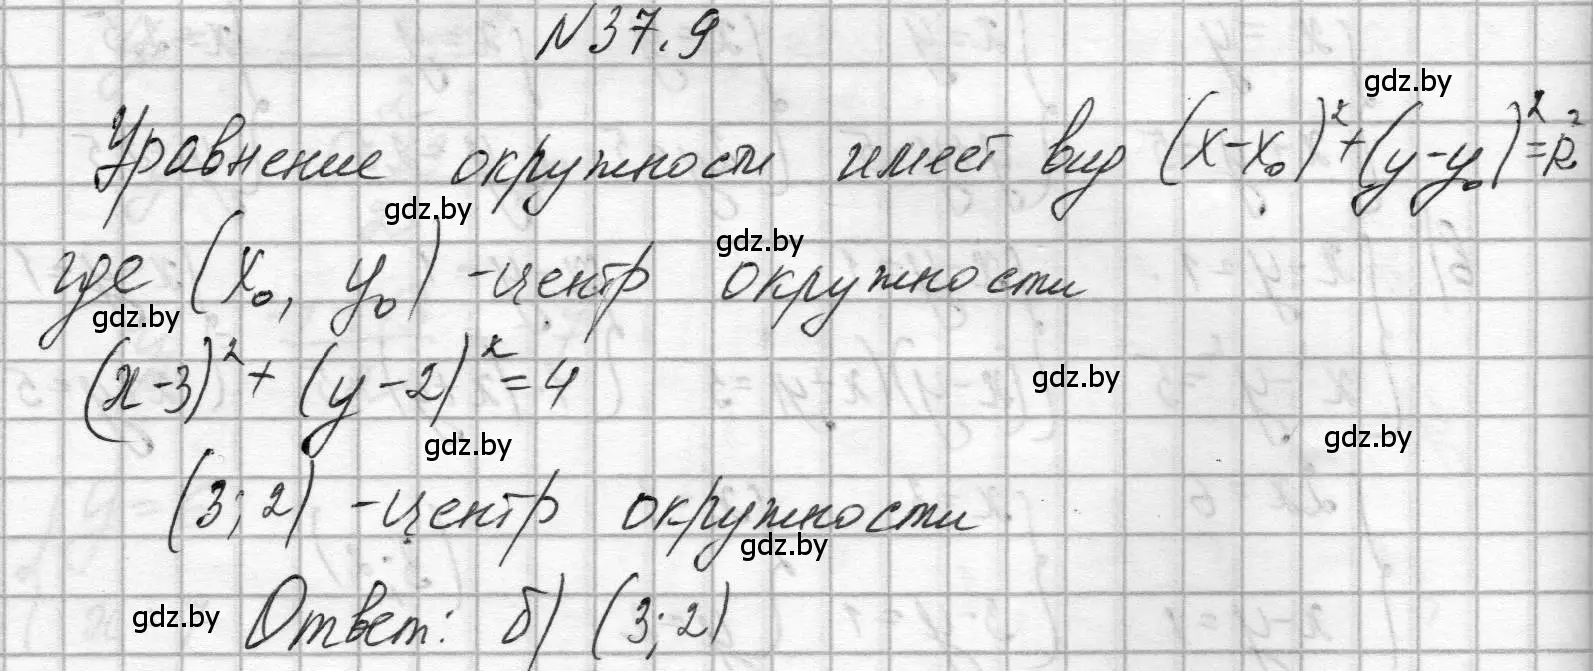 №37.9
gdz.by
Уравнение окружности имеет вид (x-x₀)²+(y-y₀)²=R²
gdz.by
gdz.by
где (x₀, y₀) -центр окружности
gdz.by
(x-3)²+(y-2)²=4
gdz.by
gdz.by
gdz.by
(3;2) -центр окружности
gdz.by
gdz.by
Ответ: б) (3;2)